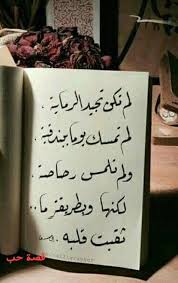 لم تكن تجيد الرماية .
لم تمسك يوما بندقية .
ولم تلمس رصاصة .
لكنها وبطريقة ما ..
ثقبت قلبه .
قصة حب